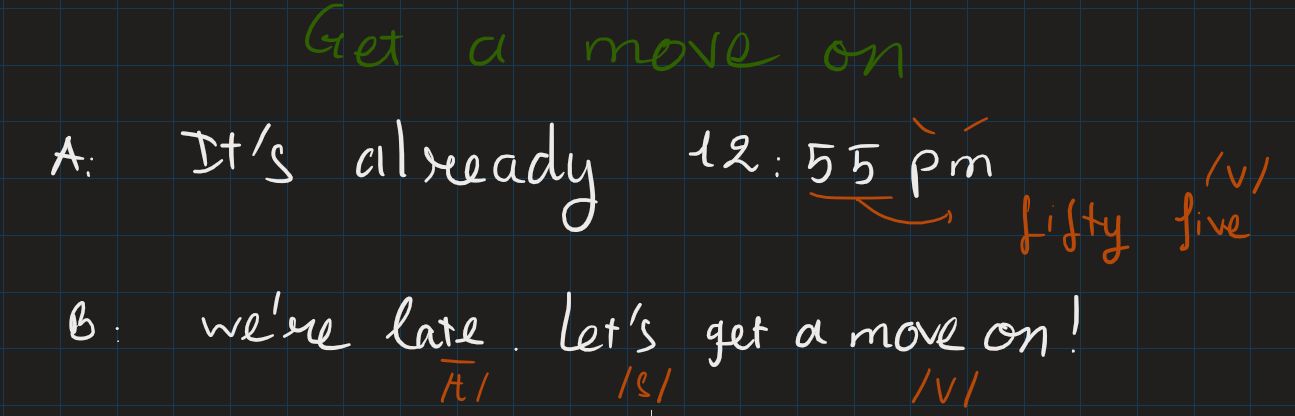 Get a move on
A: It's already 12:55 pm
/v/
fifty five
B: we're late. Let's get a move on!
/t/ /s/ /v/